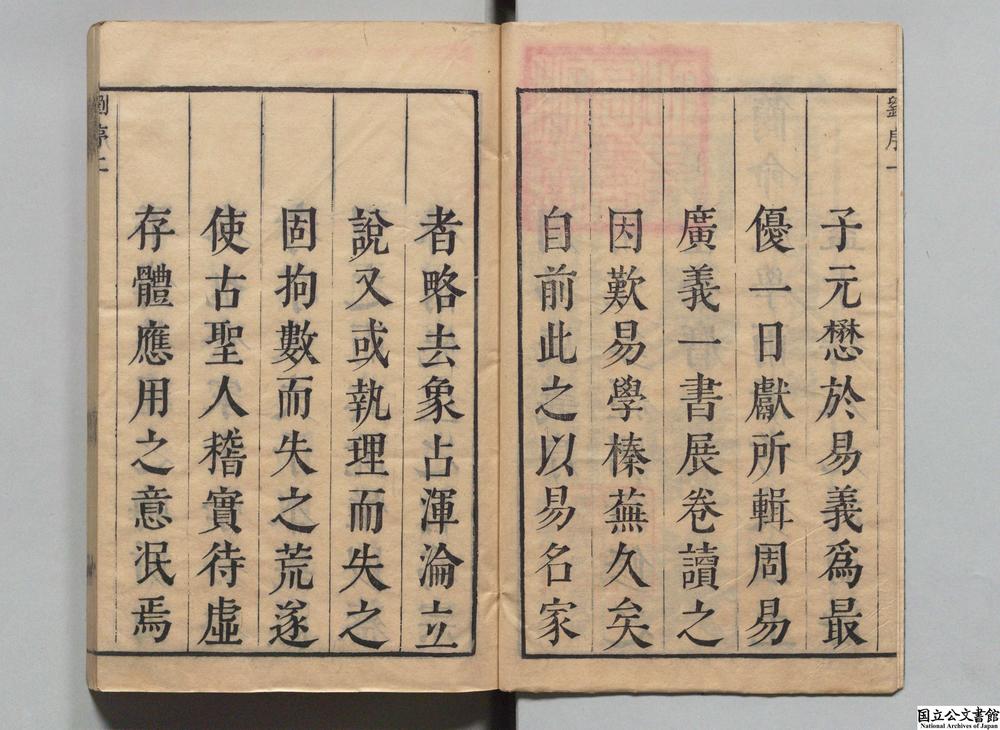 劉序一
子元懋於易義爲最
優一日獻所輯周易
廣義一書展卷讀之
因歎易學榛蕪久矣
自前此之以易名家
者略去象占渾淪立
說又或執理而失之
固拘數而失之荒遂
使古聖人稽實待虛
存體應用之意泯焉
序二
国立公文書館
National Archives of Japan